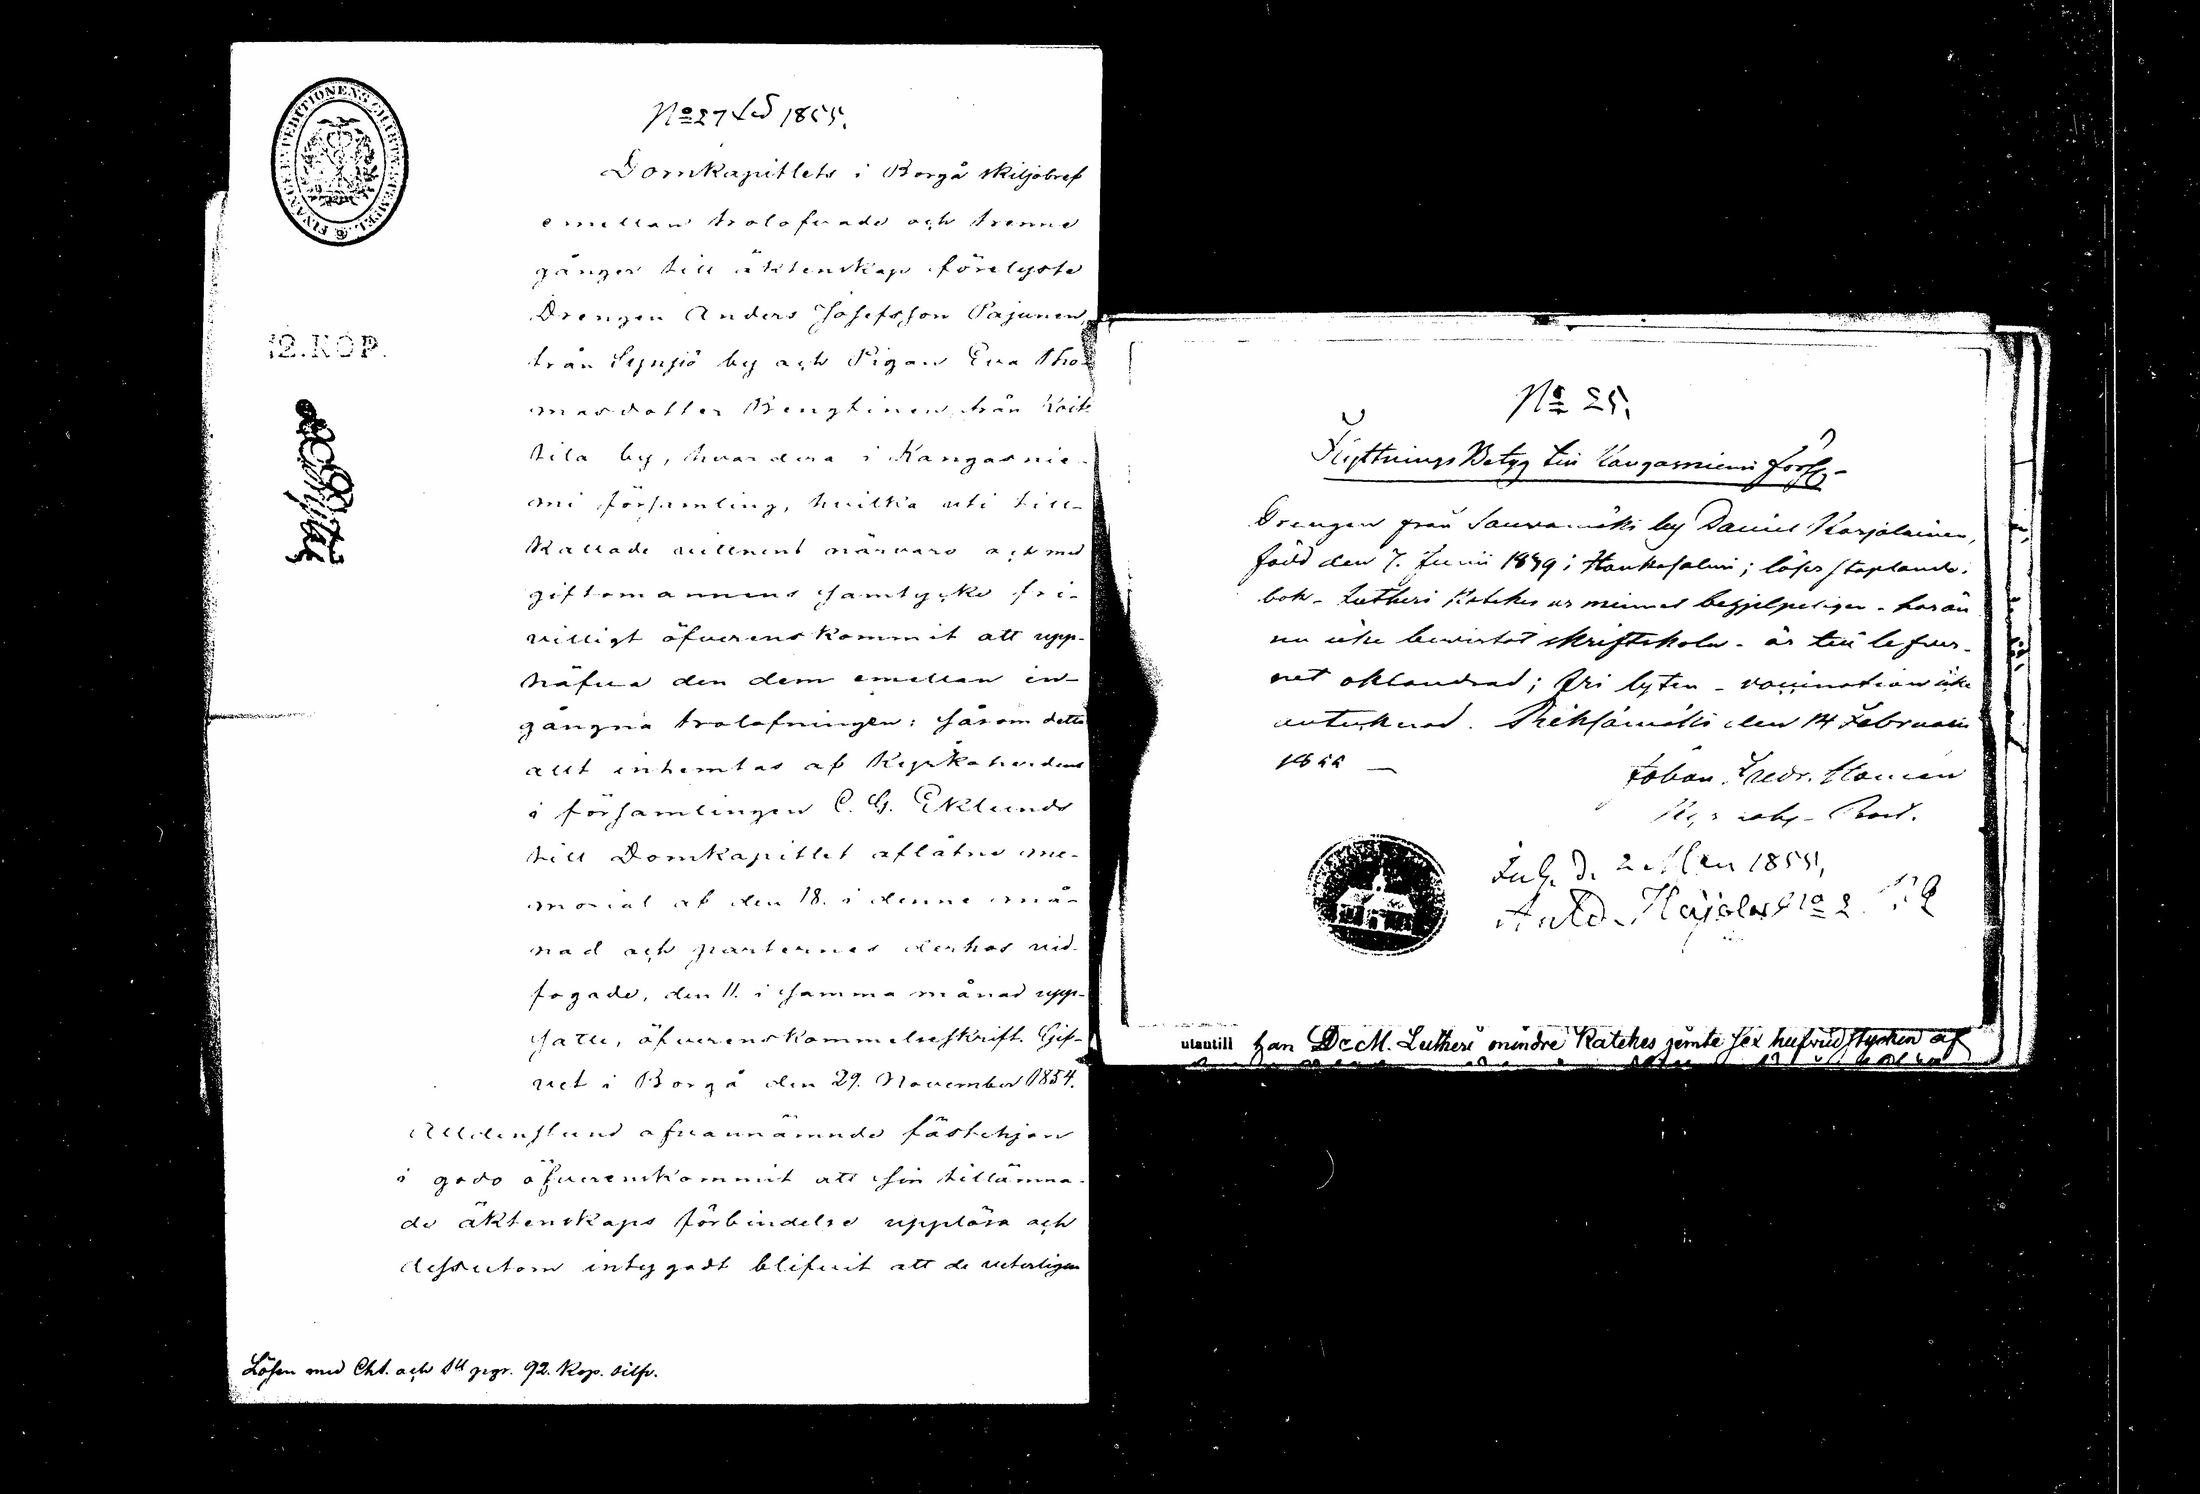 FINANCE EXPEDITIONENS CHARTÆ STEMPEL.
12. KOP.
No 27 1855.
Domkapitlets i Borgå skiljobref
emellan trolofvade och trenne
gånger till äktenskap förelyste
Drengen Anders Josefsson Pajunen,
från Synsiö by och Pigan Eva Tho-
masdotter Bengtinen från Koit-
tila by, hvardera i Kangasnie-
mi församling, hvilka uti till-
kallade vittnens närvaro och med
giftomannens samtycke fri-
villigt öfverenskommit att upp-
häfva den dem emellan in-
gångna trolofningen; såsom detta
allt inhemtas af Kyrkoherdens
i församlingen C. G. Eklunds
till Domkapitlet aflåtne me-
morial af den 18. i denne må-
nad och parternes derhos vid-
fogade, den 11. i samma månad upp-
satte, öfverenskommelseskrift. Gif-
vet i Borgå den 29. November 1854.
Alldenstund ofvannämnde fästehjon
i godo öfverenskommit att sin tillämna-
de äktenskaps förbindelse upplösa och
dessutom intygadt blifvit att de veterligen
Lösen med Cht. och 92. Kop. silfr.
No 25.
Flyttnings Betyg till Kangasniemi förs.
Drengen från Sauvamäki by Daniel Karjalainen,
född den 7. Junii 1839 i Hankasalmi; läser staplande i
bok - Lutheri Katekes ur minnet begjelpeligen - har än
nu icke bevistat skriftskola - är till lefver-
net oklandrad; fri lyten - vaccination icke
antecknad. Pieksämäki den 14 Februarii
1855
Johan Fredr.
Inl. d. 2 1855,
utantill han Dr M. Lutheri mindre Katekes jemte sex hufvudstycken af